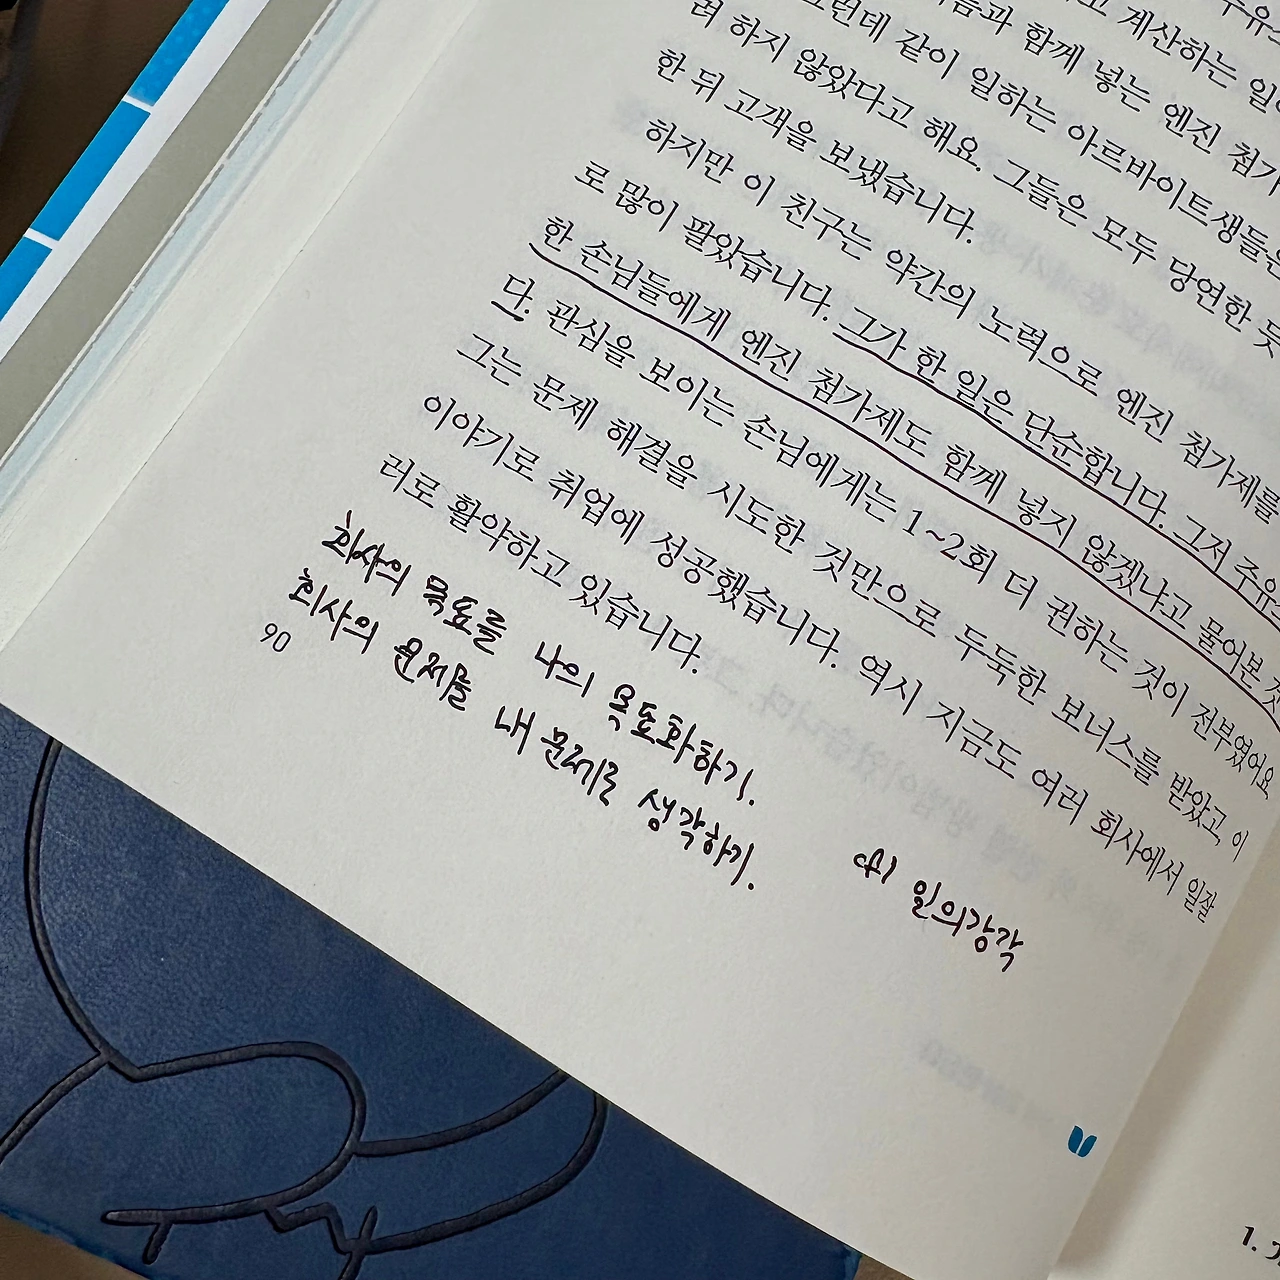 고 계산하는 일
함께 넣는 엔진 첨가
그런데 같이 일하는 아르바이트생들은
려 하지 않았다고 해요. 그들은 모두 당연한 듯
한 뒤 고객을 보냈습니다.
하지만 이 친구는 약간의 노력으로 엔진 첨가제를
로 많이 팔았습니다. 그가 한 일은 단순합니다. 그저 주유
한 손님들에게 엔진 첨가제도 함께 넣지 않겠냐고 물어본 것
다. 관심을 보이는 손님에게는 1~2회 더 권하는 것이 전부였어요
그는 문제 해결을 시도한 것만으로 두둑한 보너스를 받았고, 이
이야기로 취업에 성공했습니다. 역시 지금도 여러 회사에서 일잘
러로 활약하고 있습니다.
회사의 목표를 나의 목표화하기.
회사의 문제를 내 문제로 생각하기.
일의감각
90
1.